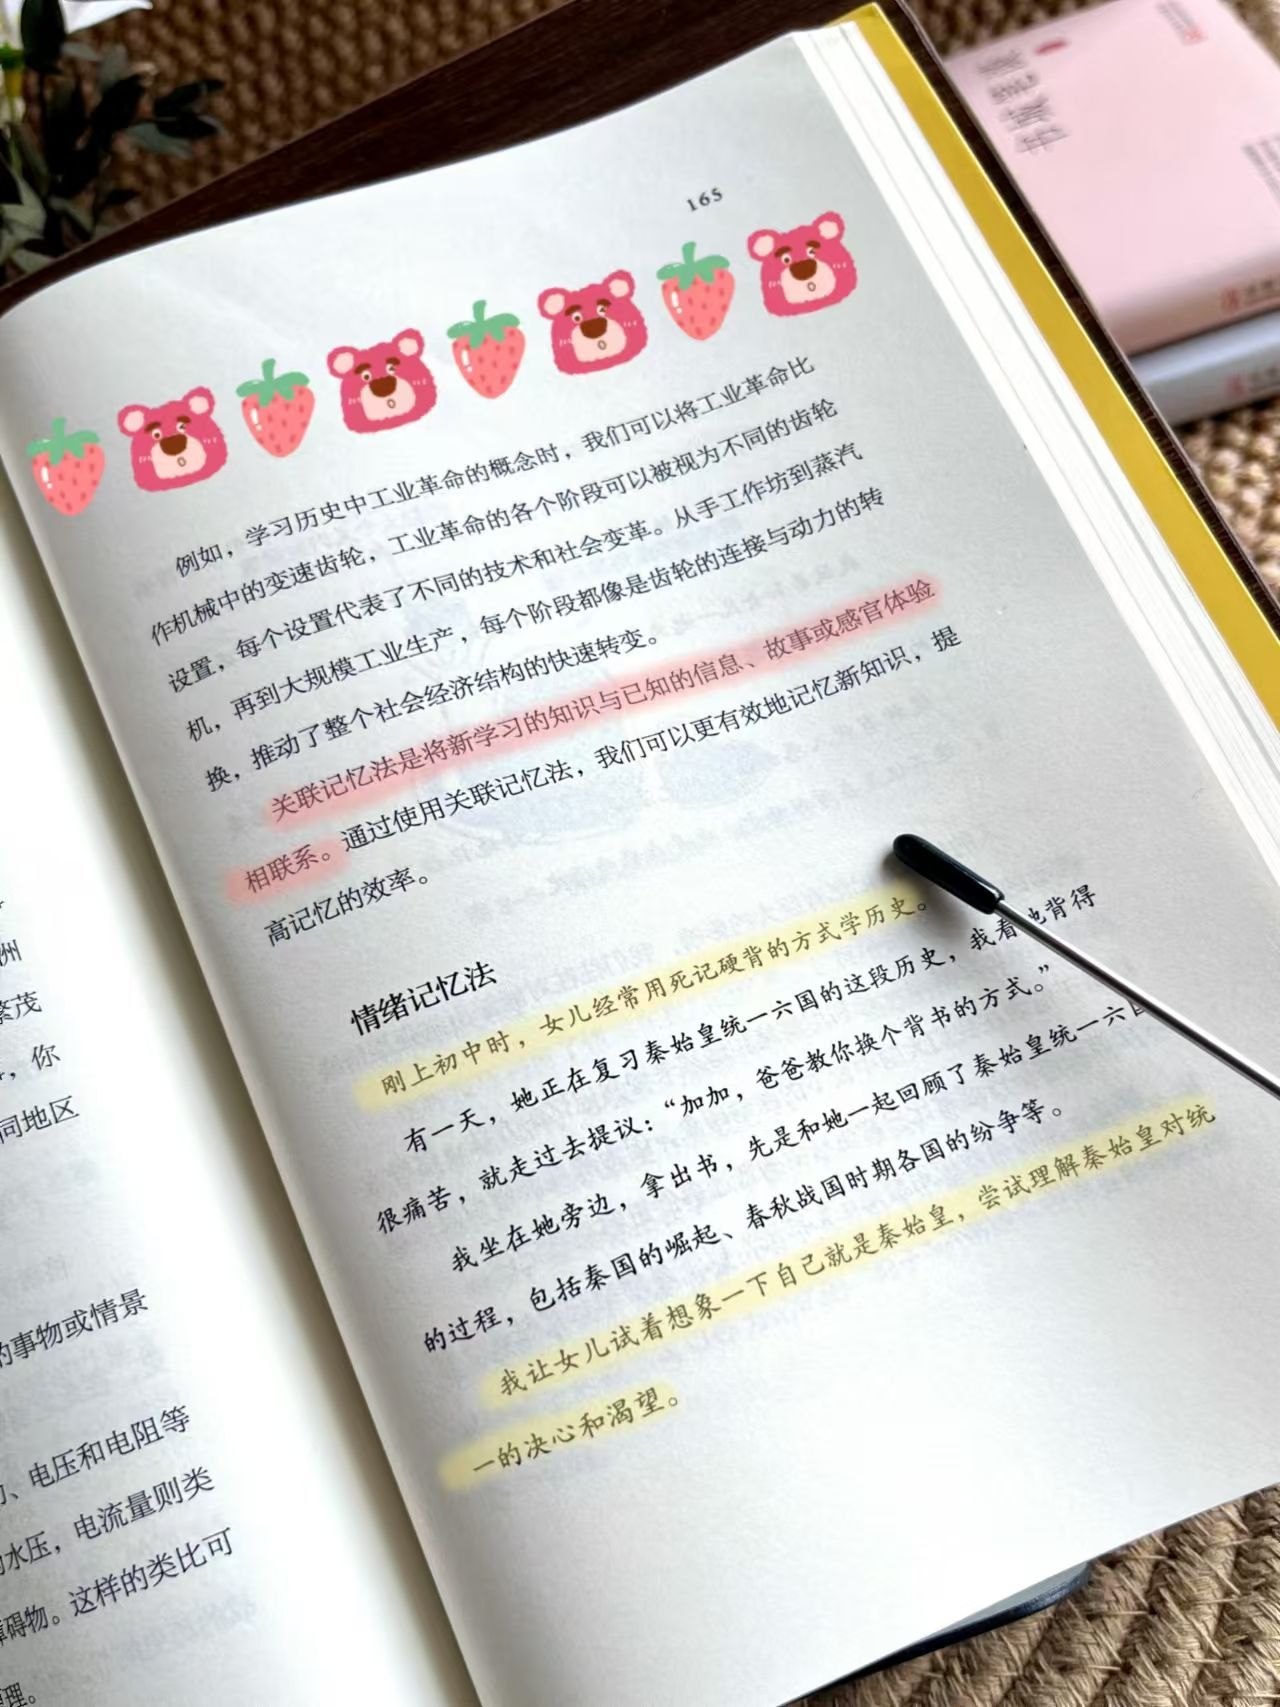 洲
繁茂
，你
同地区
的事物或情景
、电压和电阻等
水压，电流量则类
障碍物。这样的类比可
理。
165
例如，学习历史中工业革命的概念时，我们可以将工业革命比
作机械中的变速齿轮，工业革命的各个阶段可以被视为不同的齿轮
设置，每个设置代表了不同的技术和社会变革。从手工作坊到蒸汽
机，再到大规模工业生产，每个阶段都像是齿轮的连接与动力的转
换，推动了整个社会经济结构的快速转变。
关联记忆法是将新学习的知识与已知的信息、故事或感官体验
相联系。通过使用关联记忆法，我们可以更有效地记忆新知识，提
高记忆的效率。
情绪记忆法
刚上初中时，女儿经常用死记硬背的方式学历史。
有一天，她正在复习秦始皇统一六国的这段历史，我看她背得
很痛苦，就走过去提议：“加加，爸爸教你换个背书的方式。”
我坐在她旁边，拿出书，先是和她一起回顾了秦始皇统一六国
的过程，包括秦国的崛起、春秋战国时期各国的纷争等。
我让女儿试着想象一下自己就是秦始皇，尝试理解秦始皇对统
一的决心和渴望。